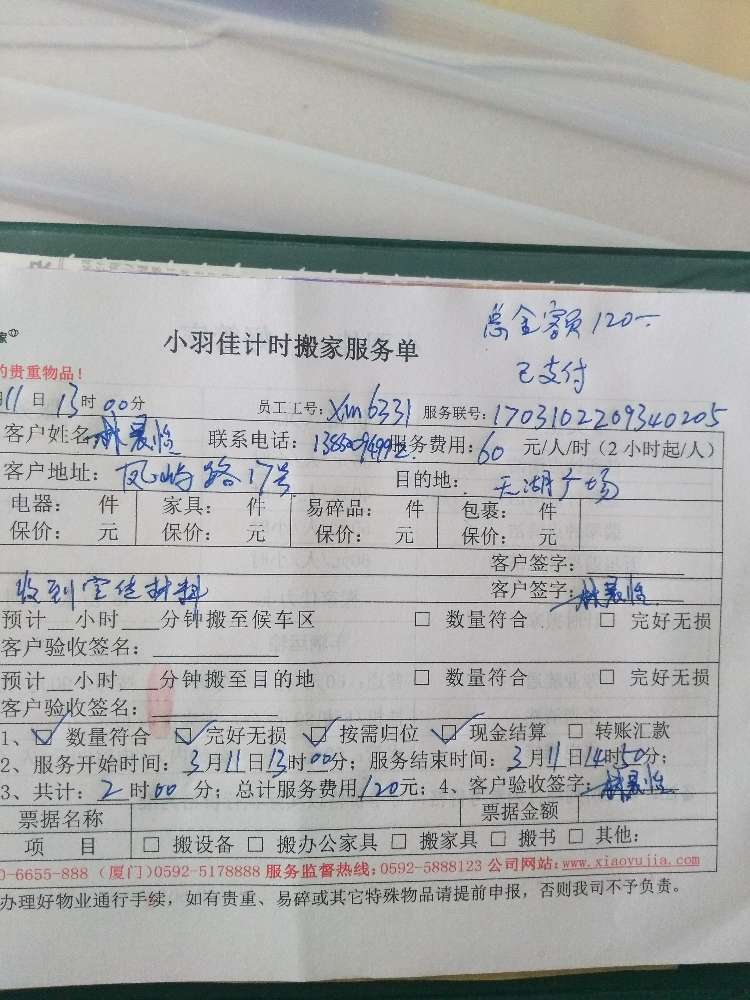 总金额120一
已支付
家
小羽佳计时搬家服务单
的贵重物品！
月11日13时00分 员工工号：Xm6331 服务联号：1703102209340205
客户姓名 林晨怡 联系电话： 服务费用：60 元/人/时（2小时起/人）
客户地址：凤屿路17号 目的地：天湖广场
电器： 件 家具： 件 易碎品： 件 包裹： 件
保价： 元 保价： 元 保价： 元 保价： 元
客户签字：
收到宣传材料 客户签字：林晨怡
预计 小时 分钟搬至候车区 □ 数量符合 □ 完好无损
客户验收签名：
预计 小时 分钟搬至目的地 □ 数量符合 □ 完好无损
客户验收签名：
1、☑ 数量符合 ☑ 完好无损 ☑ 按需归位 ☑ 现金结算 □ 转账汇款
2、服务开始时间：3月11日13时00分；服务结束时间：3月11日14时50分；
3、共计：2时00分；总计服务费用120元；4、客户验收签字：林晨怡
票据名称 票据金额
项 目 □ 搬设备 □ 搬办公家具 □ 搬家具 □ 搬书 □ 其他：
0-6655-888（厦门）0592-5178888 服务监督热线：0592-5888123 公司网站：www.xiaoyujia.com
办理好物业通行手续，如有贵重、易碎或其它特殊物品请提前申报，否则我司不予负责。